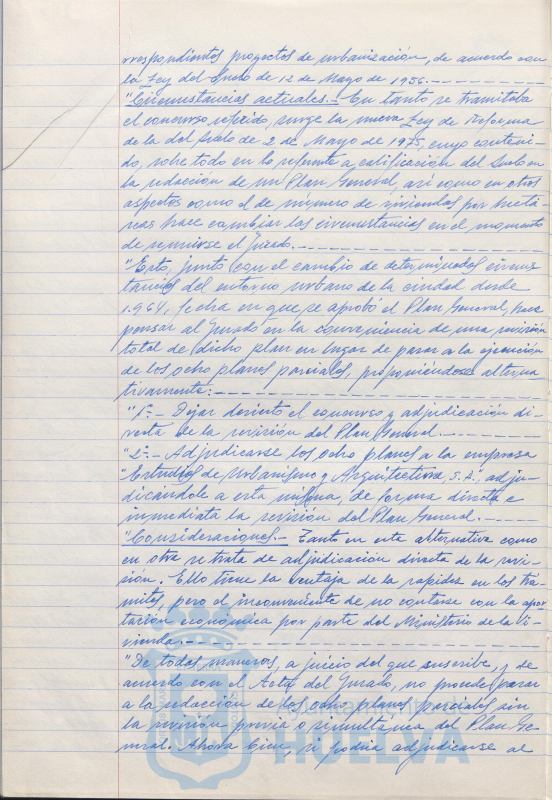 rrespondientes proyectos de urbanización, de acuerdo con
la Ley del Suelo de 12 de Mayo de 1956.-
"Circunstancias actuales.- En tanto se tramitaba
el concurso referido, surge la nueva Ley de Reforma
de la del Suelo de 2 de Mayo de 1975, cuyo conteni-
do, sobre todo en lo referente a calificación del Suelo en
la redacción de un Plan General, así como en otros
aspectos como el de número de viviendas por hectá-
reas hace cambiar las circunstancias en el momento
de reunirse el Jurado.-
"Esto, junto con el cambio de determinadas circuns
tancias del entorno urbano de la ciudad desde
1.964, fecha en que se aprobó el Plan General, hace
pensar al Jurado en la conveniencia de una revisión
total de dicho plan en lugar de pasar a la ejecución
de los ocho planes parciales, proponiéndose alterna-
tivamente:-
"1º.- Dejar desierto el concurso y adjudicación di-
recta de la revisión del Plan General.-
"2º.- Adjudicarse los ocho planes a la empresa
"Estudios de Urbanismo y Arquitectura, S.A., adju-
dicándole a esta misma, de forma directa e
inmediata la revisión del Plan General.-
"Consideraciones.- Tanto en esta alternativa como
en otra se trata de adjudicación directa de la revi-
sión. Ello tiene la ventaja de la rapidez en los trá
mites, pero el inconveniente de no contarse con la apor
tación económica por parte del Ministerio de la Vi-
vienda.-
"De todas maneras, a juicio del que suscribe, y de
acuerdo con el Acta del Jurado, no procede pasar
a la redacción de los ocho planes parciales sin
la revisión previa o simultanea del Plan Ge-
neral. Ahora bien, si podría adjudicarse al
HUELVA